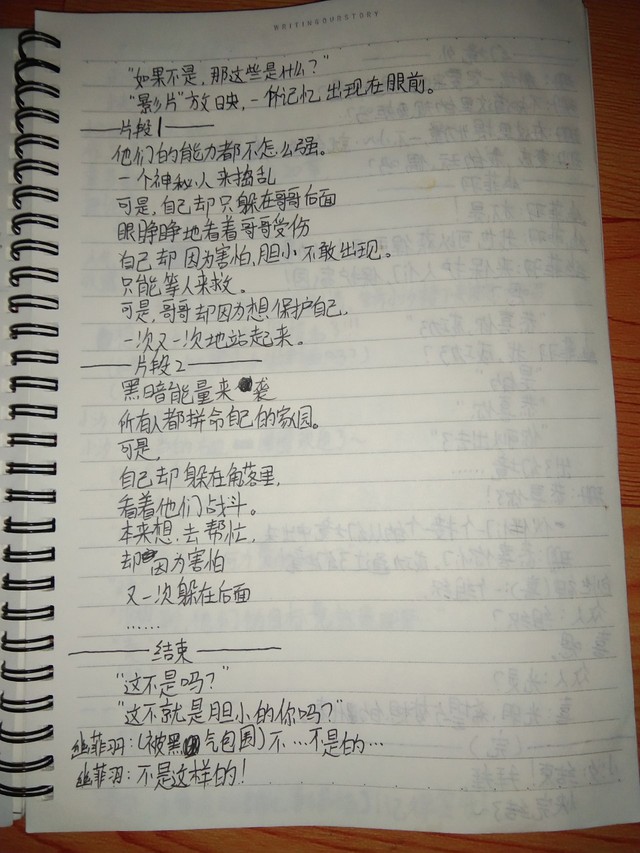 WRITINGOURSTORY
“如果不是，那这些是什么？”
“影片”放映，一件记忆出现在眼前。
——片段1——
他们的能力都不怎么强。
一个神秘人来捣乱
可是，自己却只躲在哥哥后面
眼睁睁地看着哥哥受伤
自己却因为害怕，胆小不敢出现。
只能等人来救。
可是，哥哥却因为想保护自己，
一次又一次地站起来。
——片段2——
黑暗能量来袭
所有人都拼命自己的家园。
可是，
自己却躲在角落里，
看着他们战斗。
本来想，去帮忙，
却因为害怕
又一次躲在后面
……
——结束——
“这不是吗？”
“这不就是胆小的你吗？”
幽菲羽：（被黑气包围）不…不是的…
幽菲羽：不是这样的！